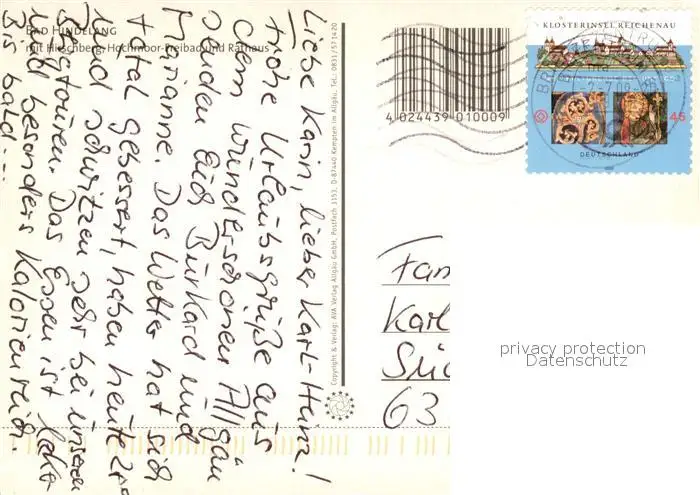 BAD HINDELANG
mit Hirschberg, Hochmoor-Freibad und Rathaus
Liebe Karin, lieber Karl-Heinz!
frohe Urlaubsgrüße aus
dem wunderschönen Allgäu
senden Euch Burkard und
Marianne. Das Wetter hat sich
total gebessert, haben heute 28°
und schwitzen sehr bei unseren
Bergtouren. Das Essen ist lecker
und besonders Kalorienreich.
Bis bald...
Copyright & Verlag: AVA Verlag Allgäu GmbH, Postfach 3153, D-87440 Kempten im Allgäu, Tel. 0831/571420
4 024439 010009
KLOSTERINSEL REICHENAU
45
DEUTSCHLAND
BRIEFZENTRUM
Fam
Karl
63
privacy protection
Datenschutz